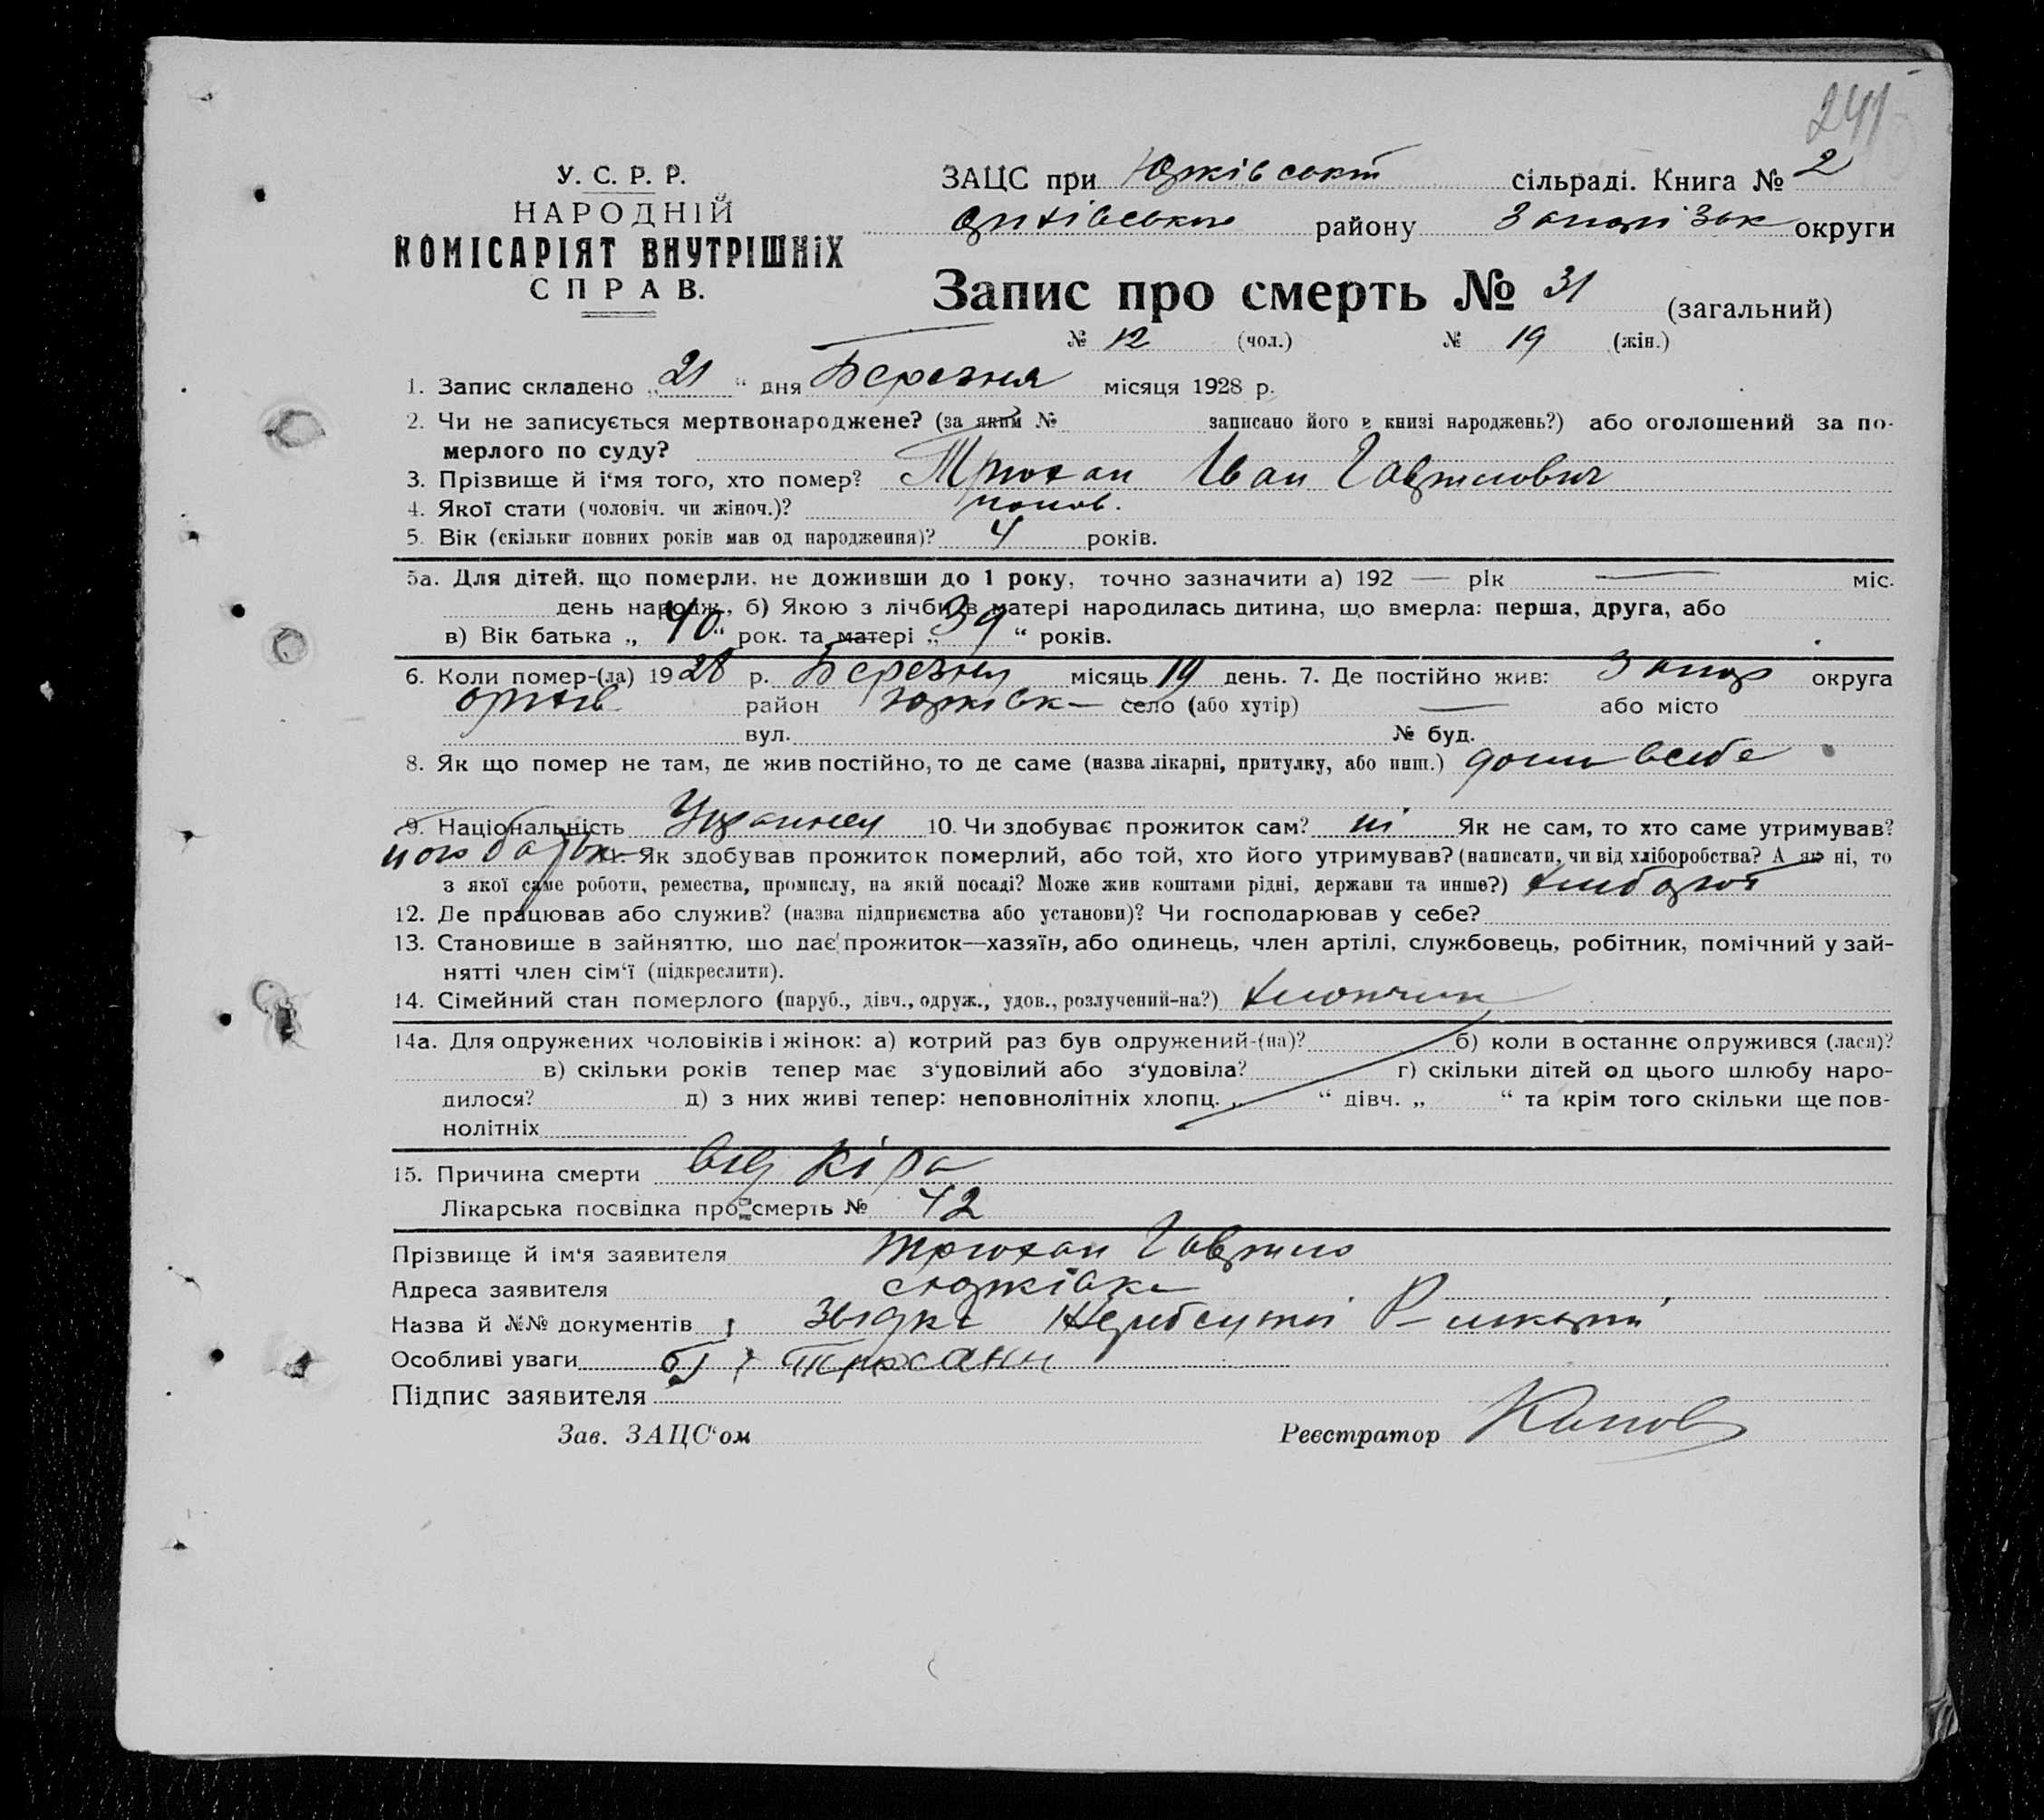 241
У. С. Р. Р.
НАРОДНІЙ
КОМІСАРІЯТ ВНУТРІШНІХ
СПРАВ.
ЗАЦС при Юрківськ сільраді. Книга № 2
Оріхівського району Запоріжк округи
Запис про смерть № 31 (загальний)
№ 12 (чол.) № 19 (жін.)
1. Запис складено „ 21 “ дня Березня місяця 1928 р.
2. Чи не записується мертвонароджене? (за яким № записано його в книзі народжень?) або оголошений за по-
мерлого по суду?
3. Прізвище й і‘мя того, хто помер? Трюхан Іван Гаврилович
4. Якої стати (чоловіч. чи жіноч.)? чолов.
5. Вік (скільки повних років мав од народження)? 4 років.
5а. Для дітей, що померли, не доживши до 1 року, точно зазначити а) 192 — рік — міс.
день народж., б) Якою з лічби в матері народилась дитина, що вмерла: перша, друга, або
в) Вік батька „ 40 “ рок. та матері „ 39 “ років.
6. Коли помер-(ла) 1928 р. Березня місяць 19 день. 7. Де постійно жив: Запор округа
Оріхів район Юрківк село (або хутір) — або місто
вул. № буд.
8. Як що помер не там, де жив постійно, то де саме (назва лікарні, притулку, або инш.) дома в себе
9. Національність Украинец 10. Чи здобуває прожиток сам? ні Як не сам, то хто саме утримував?
його батько 11. Як здобував прожиток померлий, або той, хто його утримував? (написати, чи від хліборобства? А як ні, то
з якої саме роботи, ремества, промислу, на якій посаді? Може жив коштами рідні, держави та инше?) хлібороб
12. Де працював або служив? (назва підприємства або установи)? Чи господарював у себе?
13. Становише в зайняттю, що дає прожиток—хазяїн, або одинець, член артілі, службовець, робітник, помічний у зай-
нятті член сім‘ї (підкреслити).
14. Сімейний стан померлого (паруб., дівч., одруж., удов., розлучений-на?) хлопчик
14а. Для одружених чоловіків і жінок: а) котрий раз був одружений-(на)? б) коли в останнє одружився (лася)?
в) скільки років тепер має з‘удовілий або з‘удовіла? г) скільки дітей од цього шлюбу наро-
дилося? д) з них живі тепер: неповнолітніх хлопц. „ “ дівч. „ “ та крім того скільки ще пов-
нолітніх
15. Причина смерти від кіра
Лікарська посвідка про смерть № 42
Прізвище й ім‘я заявителя Трюхан Гаврило
Адреса заявителя с Юрківка
Назва й №№ документів
Особливі уваги
Підпис заявителя
Зав. ЗАЦС‘ом Реєстратор